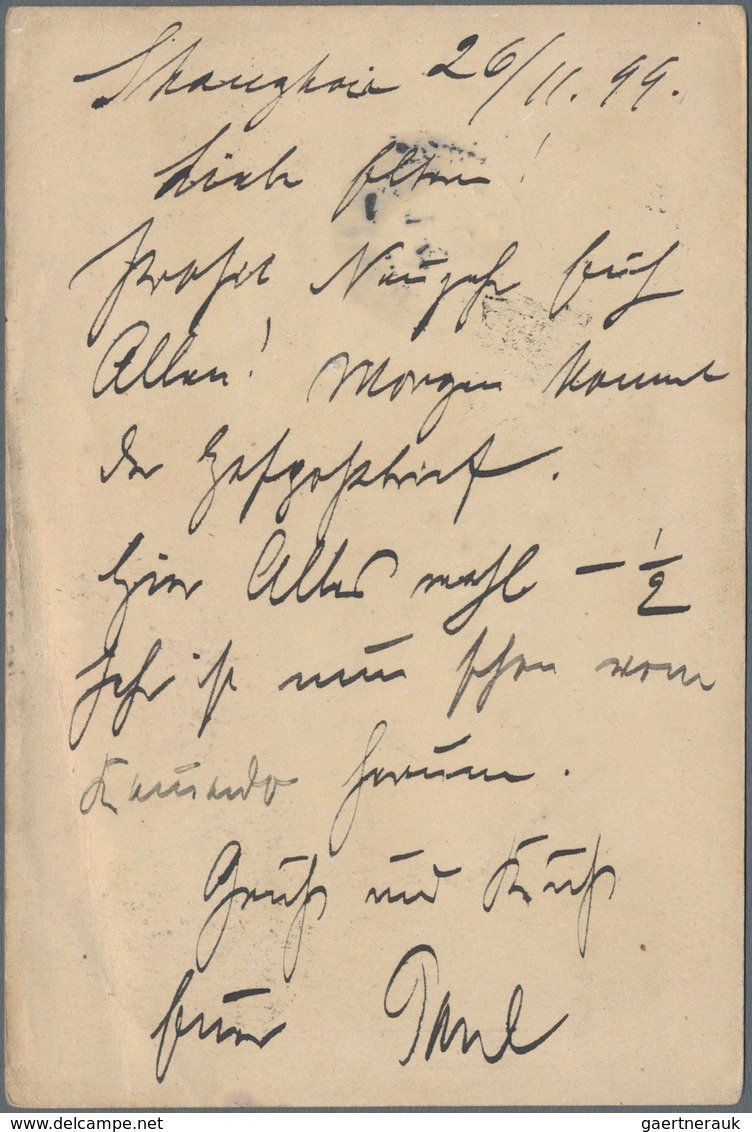 Shanghai 26/11. 99.
Liebe Eltern!
Prosit Neujahr Euch
Allen! Morgen kommt
der Hofpostbrief.
Hier Alles wohl – 1/2
Jahr ist nun schon vom
Kommando herum.
Gruß und Kuß
Euer Paul
gaertnerauk